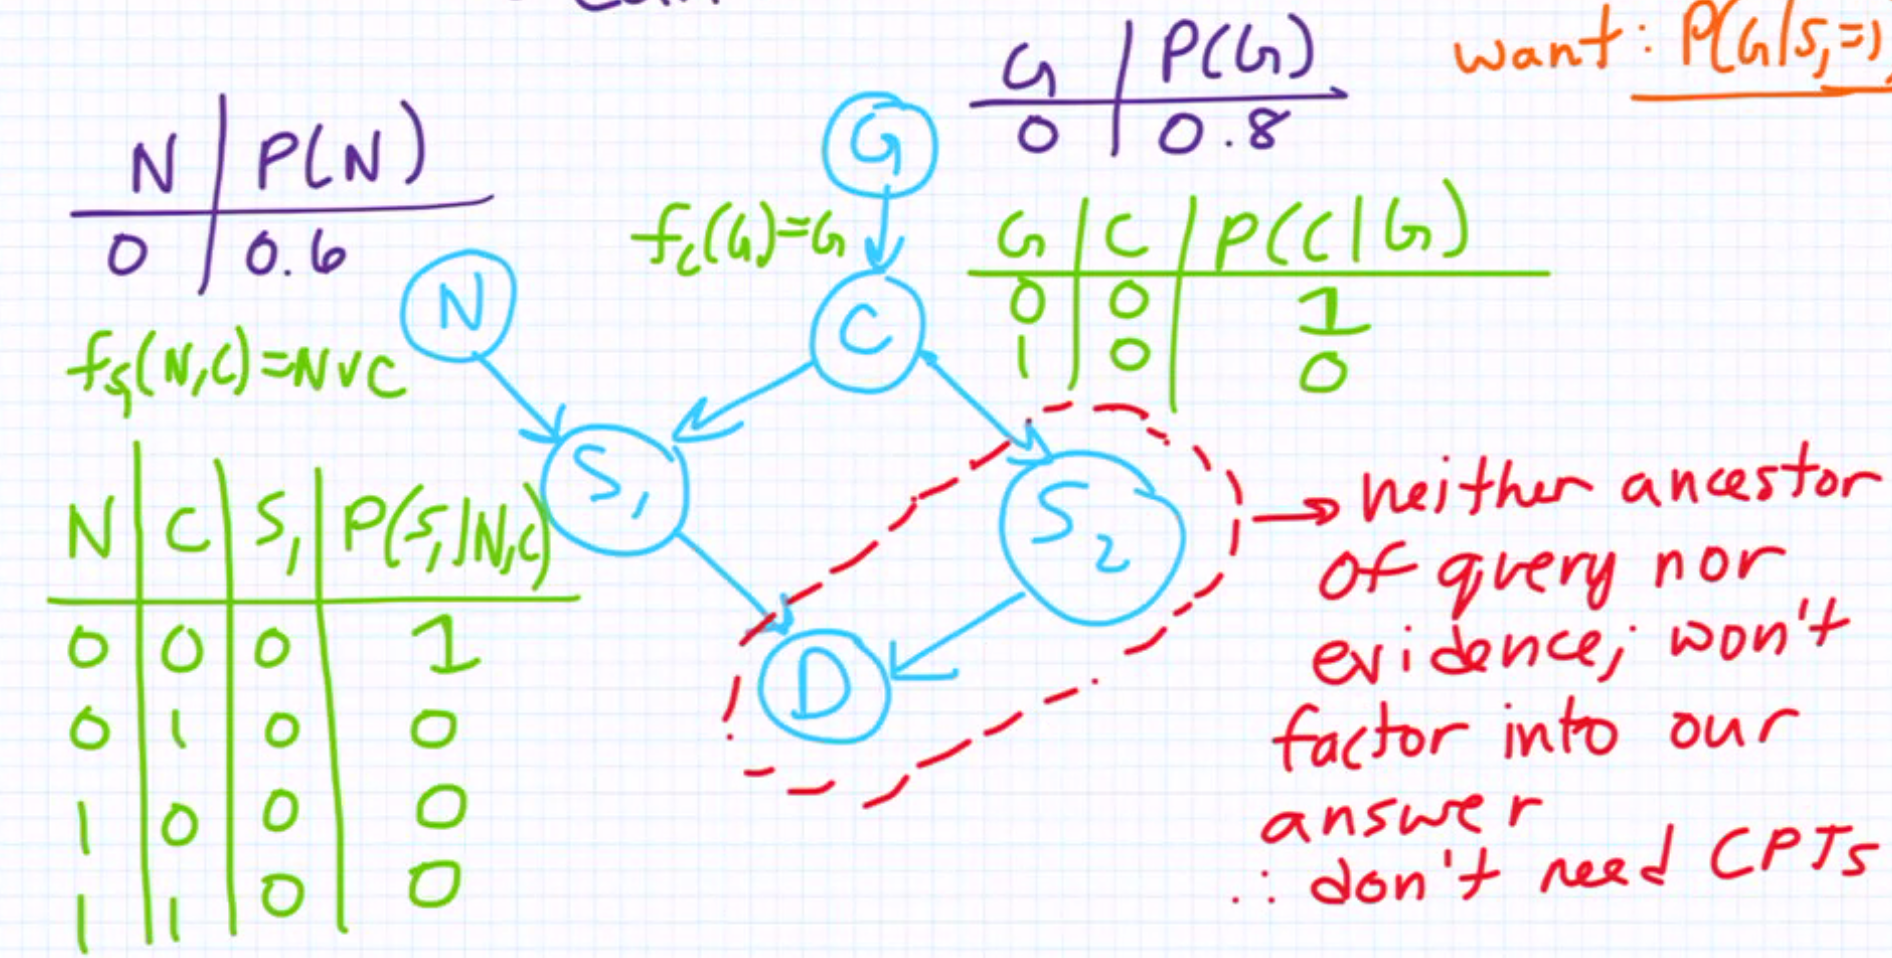 G | P(G)
0 | 0.8
want: P(G|S₁=1)
N | P(N)
0 | 0.6
G
f_c(G)=G
G | C | P(C|G)
0 | 0 | 1
1 | 0 | 0
N
C
f_S₁(N,C)=N∨C
N | C | S₁ | P(S₁|N,C)
0 | 0 | 0 | 1
0 | 1 | 0 | 0
1 | 0 | 0 | 0
1 | 1 | 0 | 0
S₁
S₂
D
→ neither ancestor
of query nor
evidence; won't
factor into our
answer
∴ don't need CPTs